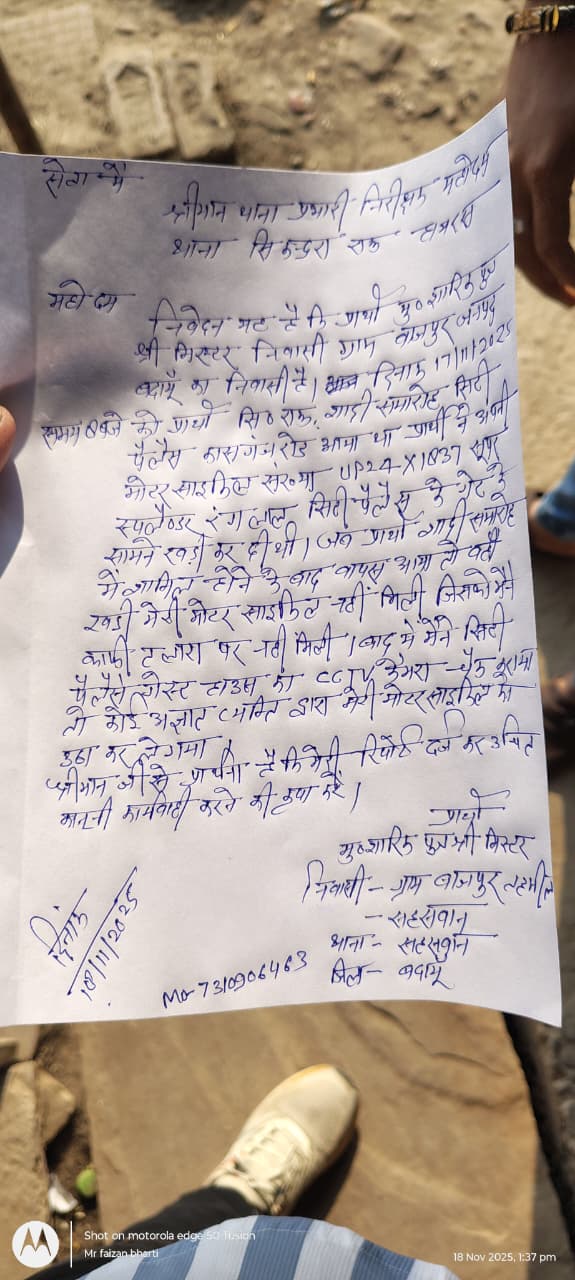 सेवा में
श्रीमान थाना प्रभारी निरीक्षक महोदय
थाना सिकन्दरा राऊ हाथरस
महोदय
निवेदन यह है कि प्रार्थी मु० शारिक पुत्र
श्री मिस्टर निवासी ग्राम बाजपुर जनपद
बदायूँ का निवासी है। दिनांक 17/11/2025
समय 8 बजे को प्रार्थी सि० राऊ, शादी समारोह सिटी
पैलेस कासगंज रोड आया था प्रार्थी ने अपनी
मोटर साइकिल संख्या UP24-X1837 सुपर
स्पलैण्डर रंग लाल सिटी पैलेस के गेट के
सामने खड़ी कर दी थी। जब प्रार्थी शादी समारोह
में शामिल होने के बाद वापस आया तो वहाँ
खडी मेरी मोटर साइकिल नही मिली जिसको मैंने
काफी तलाश पर नही मिली। बाद में मैंने सिटी
पैलेस गेस्ट हाउस का CCTV कैमरा चैक कराया
तो कोई अज्ञात व्यक्ति द्वारा मेरी मोटर साइकिल को
उठा कर ले गया।
श्रीमान जी से प्रार्थना है कि मेरी रिपोर्ट दर्ज कर उचित
कानूनी कार्यवाही करने की कृपा करें।
प्रार्थी
मु० शारिक पुत्र श्री मिस्टर
निवासी - ग्राम बाजपुर तहसील
- सहसवान
थाना - सहसवान
जिला - बदायूँ
दिनांक
18/11/2025
Mo-7310906463
Shot on motorola edge 50 fusion
Mr faizan bharti
18 Nov 2025, 1:37 pm